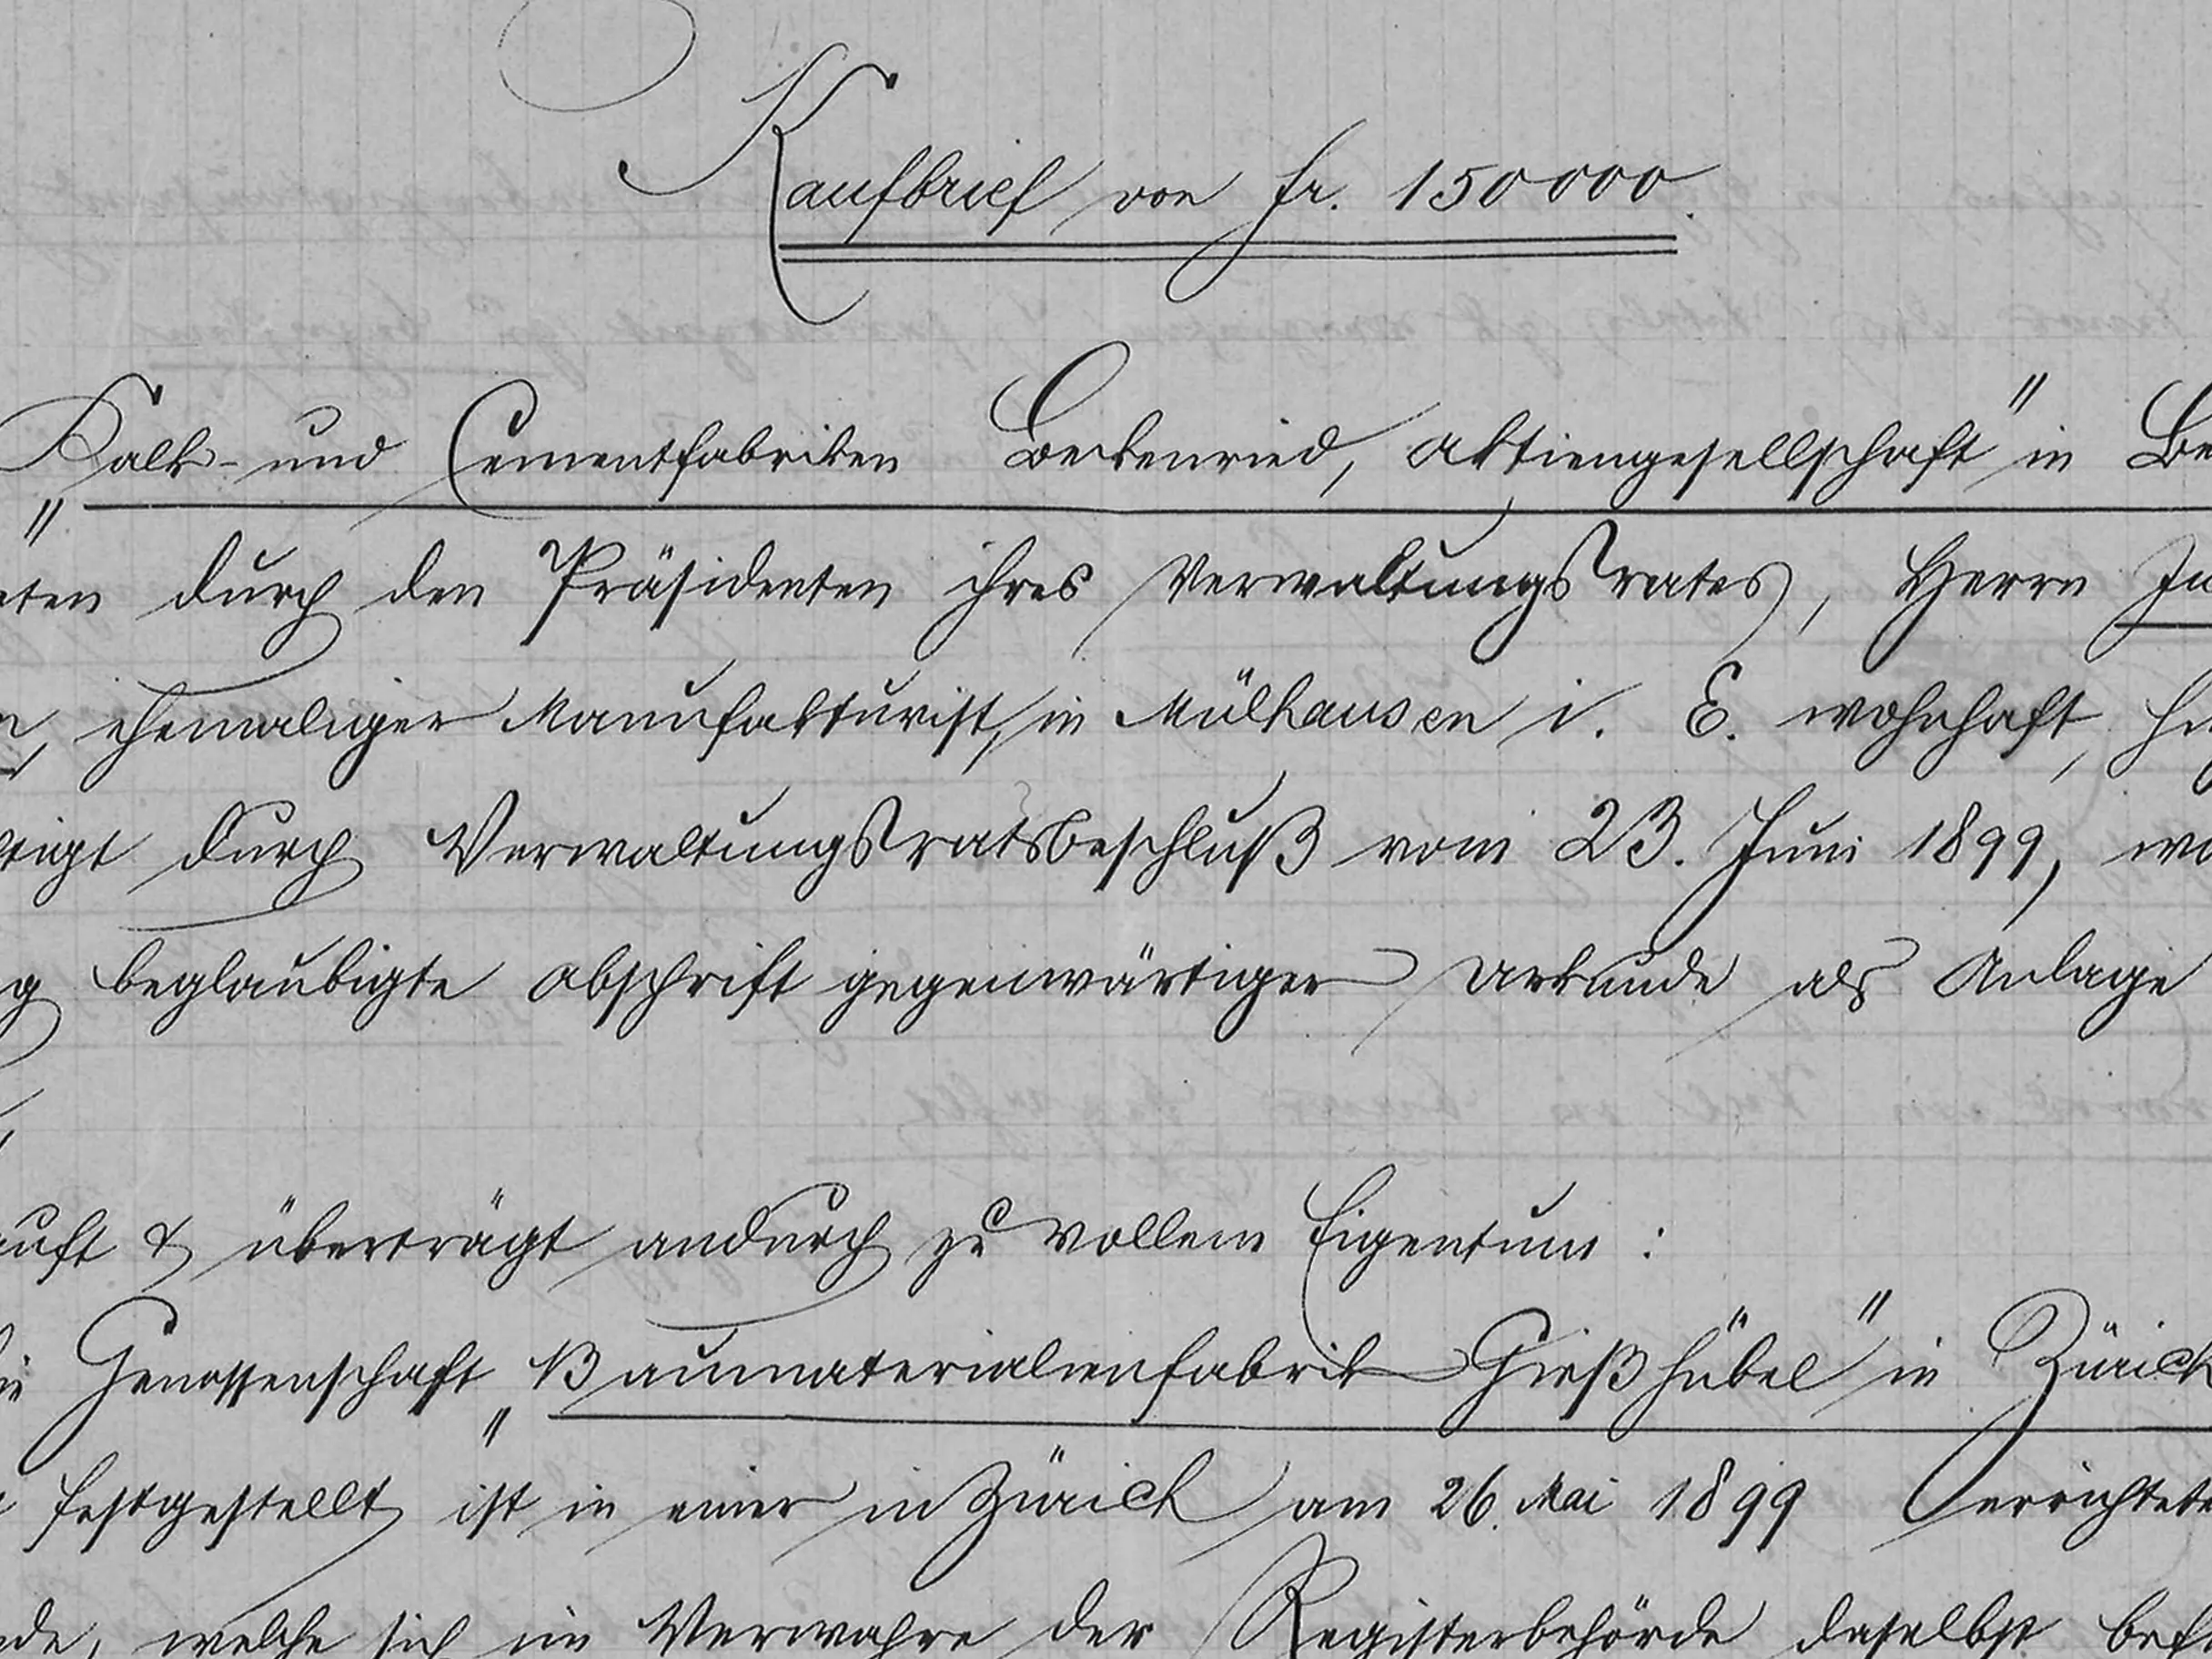 Kaufbrief von fr. 150000.
„Kalk- und Cementfabriken Beckenried, Aktiengesellschaft" in Be
eten durch den Präsidenten ihres Verwaltungsrates, Herrn
ehemaliger Manufakturist, in Mülhausen i. E. wohnhaft,
tigt durch Verwaltungsratsbeschluß vom 23. Juni 1899, wo
g beglaubigte Abschrift gegenwärtiger Urkunde als Anlage
auft & überträgt andurch zu vollem Eigentum :
die Genossenschaft „Baumaterialienfabrik Gießhübel" in Zürich
festgestellt ist in einer in Zürich am 26. Mai 1899 errichtete
nde, welche sich im Verwahre der Registerbehörde daselbst bef